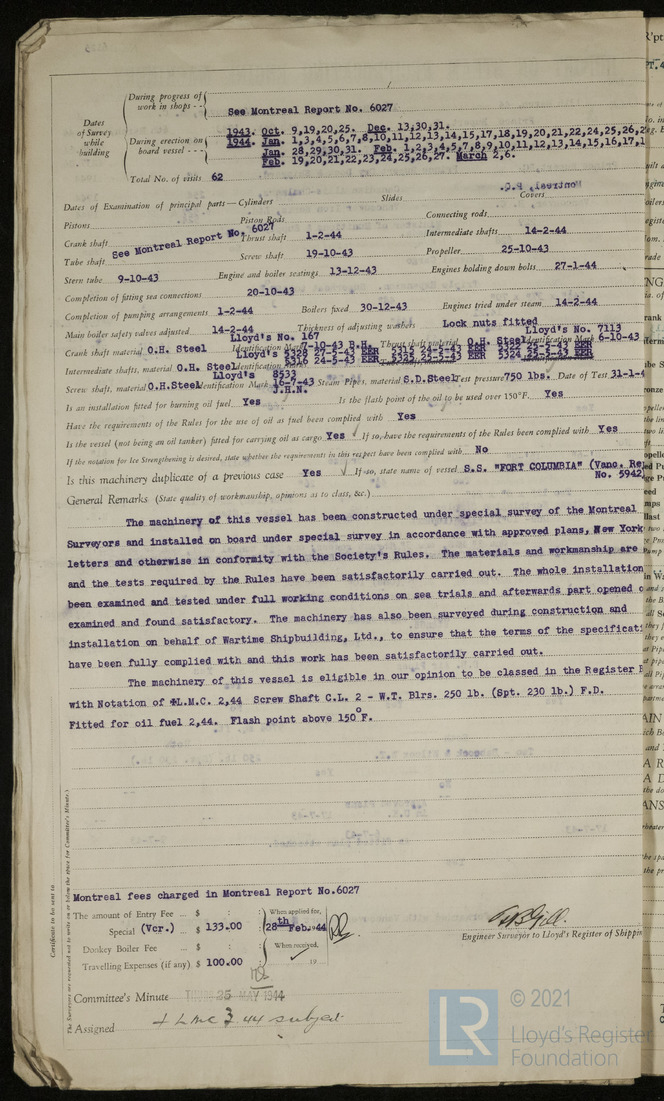 During progress of work in shops - - See Montreal Report No. 6027
Dates of Survey while building
During erection on board vessel - - -
1943. Oct. 9,19,20,25. Dec. 13,30,31.
1944. Jan. 1,3,4,5,6,7,8,10,11,12,13,14,15,17,18,19,20,21,22,24,25,26,2
Jan. 28,29,30,31. Feb. 1,2,3,4,5,7,8,9,10,11,12,13,14,15,16,17,1
Feb. 19,20,21,22,23,24,25,26,27. March 2,6.
Total No. of visits 62
Dates of Examination of principal parts—Cylinders Slides Covers
Pistons Piston Rods Connecting rods
Crank shaft See Montreal Report No. 6027 Thrust shaft 1-2-44 Intermediate shafts 14-2-44
Tube shaft Screw shaft 19-10-43 Propeller 25-10-43
Stern tube 9-10-43 Engine and boiler seatings 13-12-43 Engines holding down bolts 27-1-44
Completion of fitting sea connections 20-10-43
Completion of pumping arrangements 1-2-44 Boilers fixed 30-12-43 Engines tried under steam 14-2-44
Main boiler safety valves adjusted 14-2-44 Thickness of adjusting washers Lock nuts fitted
Lloyd's No. 167 Lloyd's No. 7113
Crank shaft material O.H. Steel Identification Mark 7-10-43 B.H. Thrust shaft material O.H. Steel Identification Mark 6-10-43
Lloyd's 5328 27-5-43 EER
Intermediate shafts, material O.H. Steel Identification Marks 5316 24-5-43 EER 5324 25-5-43 EER
Lloyd's 8533
Screw shaft, material O.H.Steel Identification Mark 16-7-43 Steam Pipes, material S.D.Steel Test pressure 750 lbs. Date of Test 31-1-4
J.H.N.
Is an installation fitted for burning oil fuel Yes Is the flash point of the oil to be used over 150°F. Yes
Have the requirements of the Rules for the use of oil as fuel been complied with Yes
Is the vessel (not being an oil tanker) fitted for carrying oil as cargo Yes If so, have the requirements of the Rules been complied with Yes
If the notation for Ice Strengthening is desired, state whether the requirements in this respect have been complied with No
Is this machinery duplicate of a previous case Yes If so, state name of vessel S.S. "FORT COLUMBIA" (Vanc. Re
No. 5942
General Remarks (State quality of workmanship, opinions as to class, &c.)
The machinery of this vessel has been constructed under special survey of the Montreal
Surveyors and installed on board under special survey in accordance with approved plans, New York
letters and otherwise in conformity with the Society's Rules. The materials and workmanship are
and the tests required by the Rules have been satisfactorily carried out. The whole installation
been examined and tested under full working conditions on sea trials and afterwards part opened o
examined and found satisfactory. The machinery has also been surveyed during construction and
installation on behalf of Wartime Shipbuilding, Ltd., to ensure that the terms of the specificati
have been fully complied with and this work has been satisfactorily carried out.
The machinery of this vessel is eligible in our opinion to be classed in the Register B
with Notation of +L.M.C. 2,44 Screw Shaft C.L. 2 - W.T. Blrs. 250 lb. (Spt. 230 lb.) F.D.
Fitted for oil fuel 2,44. Flash point above 150°F.
Certificate to be sent to
The Surveyors are requested not to write on or below the space for Committee's Minute.
Montreal fees charged in Montreal Report No.6027
The amount of Entry Fee ... $ : When applied for,
Special (Vcr.) ... $ 133.00 28th Feb. 44
Donkey Boiler Fee ... $ : When received,
Travelling Expenses (if any) $ 100.00 19
Engineer Surveyor to Lloyd's Register of Shippin
Committee's Minute THURS 25 MAY 1944
Assigned + LMC 3 44 subject
© 2021
LR
Lloyd's Register
Foundation